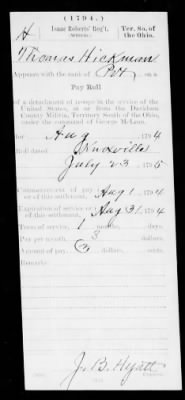 (1794.)
H
Isaac Roberts' Reg't
(Militia.)
Ter. So. of
the Ohio.
Thomas Hickman
Appears with the rank of Pvt on a
Pay Roll
of a detachment of troops in the service of the
United States, as or from the Davidson
County Militia, Territory South of the Ohio,
under the command of George McLean,
for Aug 1794
Roll dated Knoxville
July 23 1795
Commencement of pay of this settlement, Aug 1 1794
Expiration of service or of this settlement, Aug 31 1794
Term of service, 1 months, days.
Pay per month, 3 dollars.
Amount of pay, 3 dollars, cents.
Remarks:
J. B. Hyatt